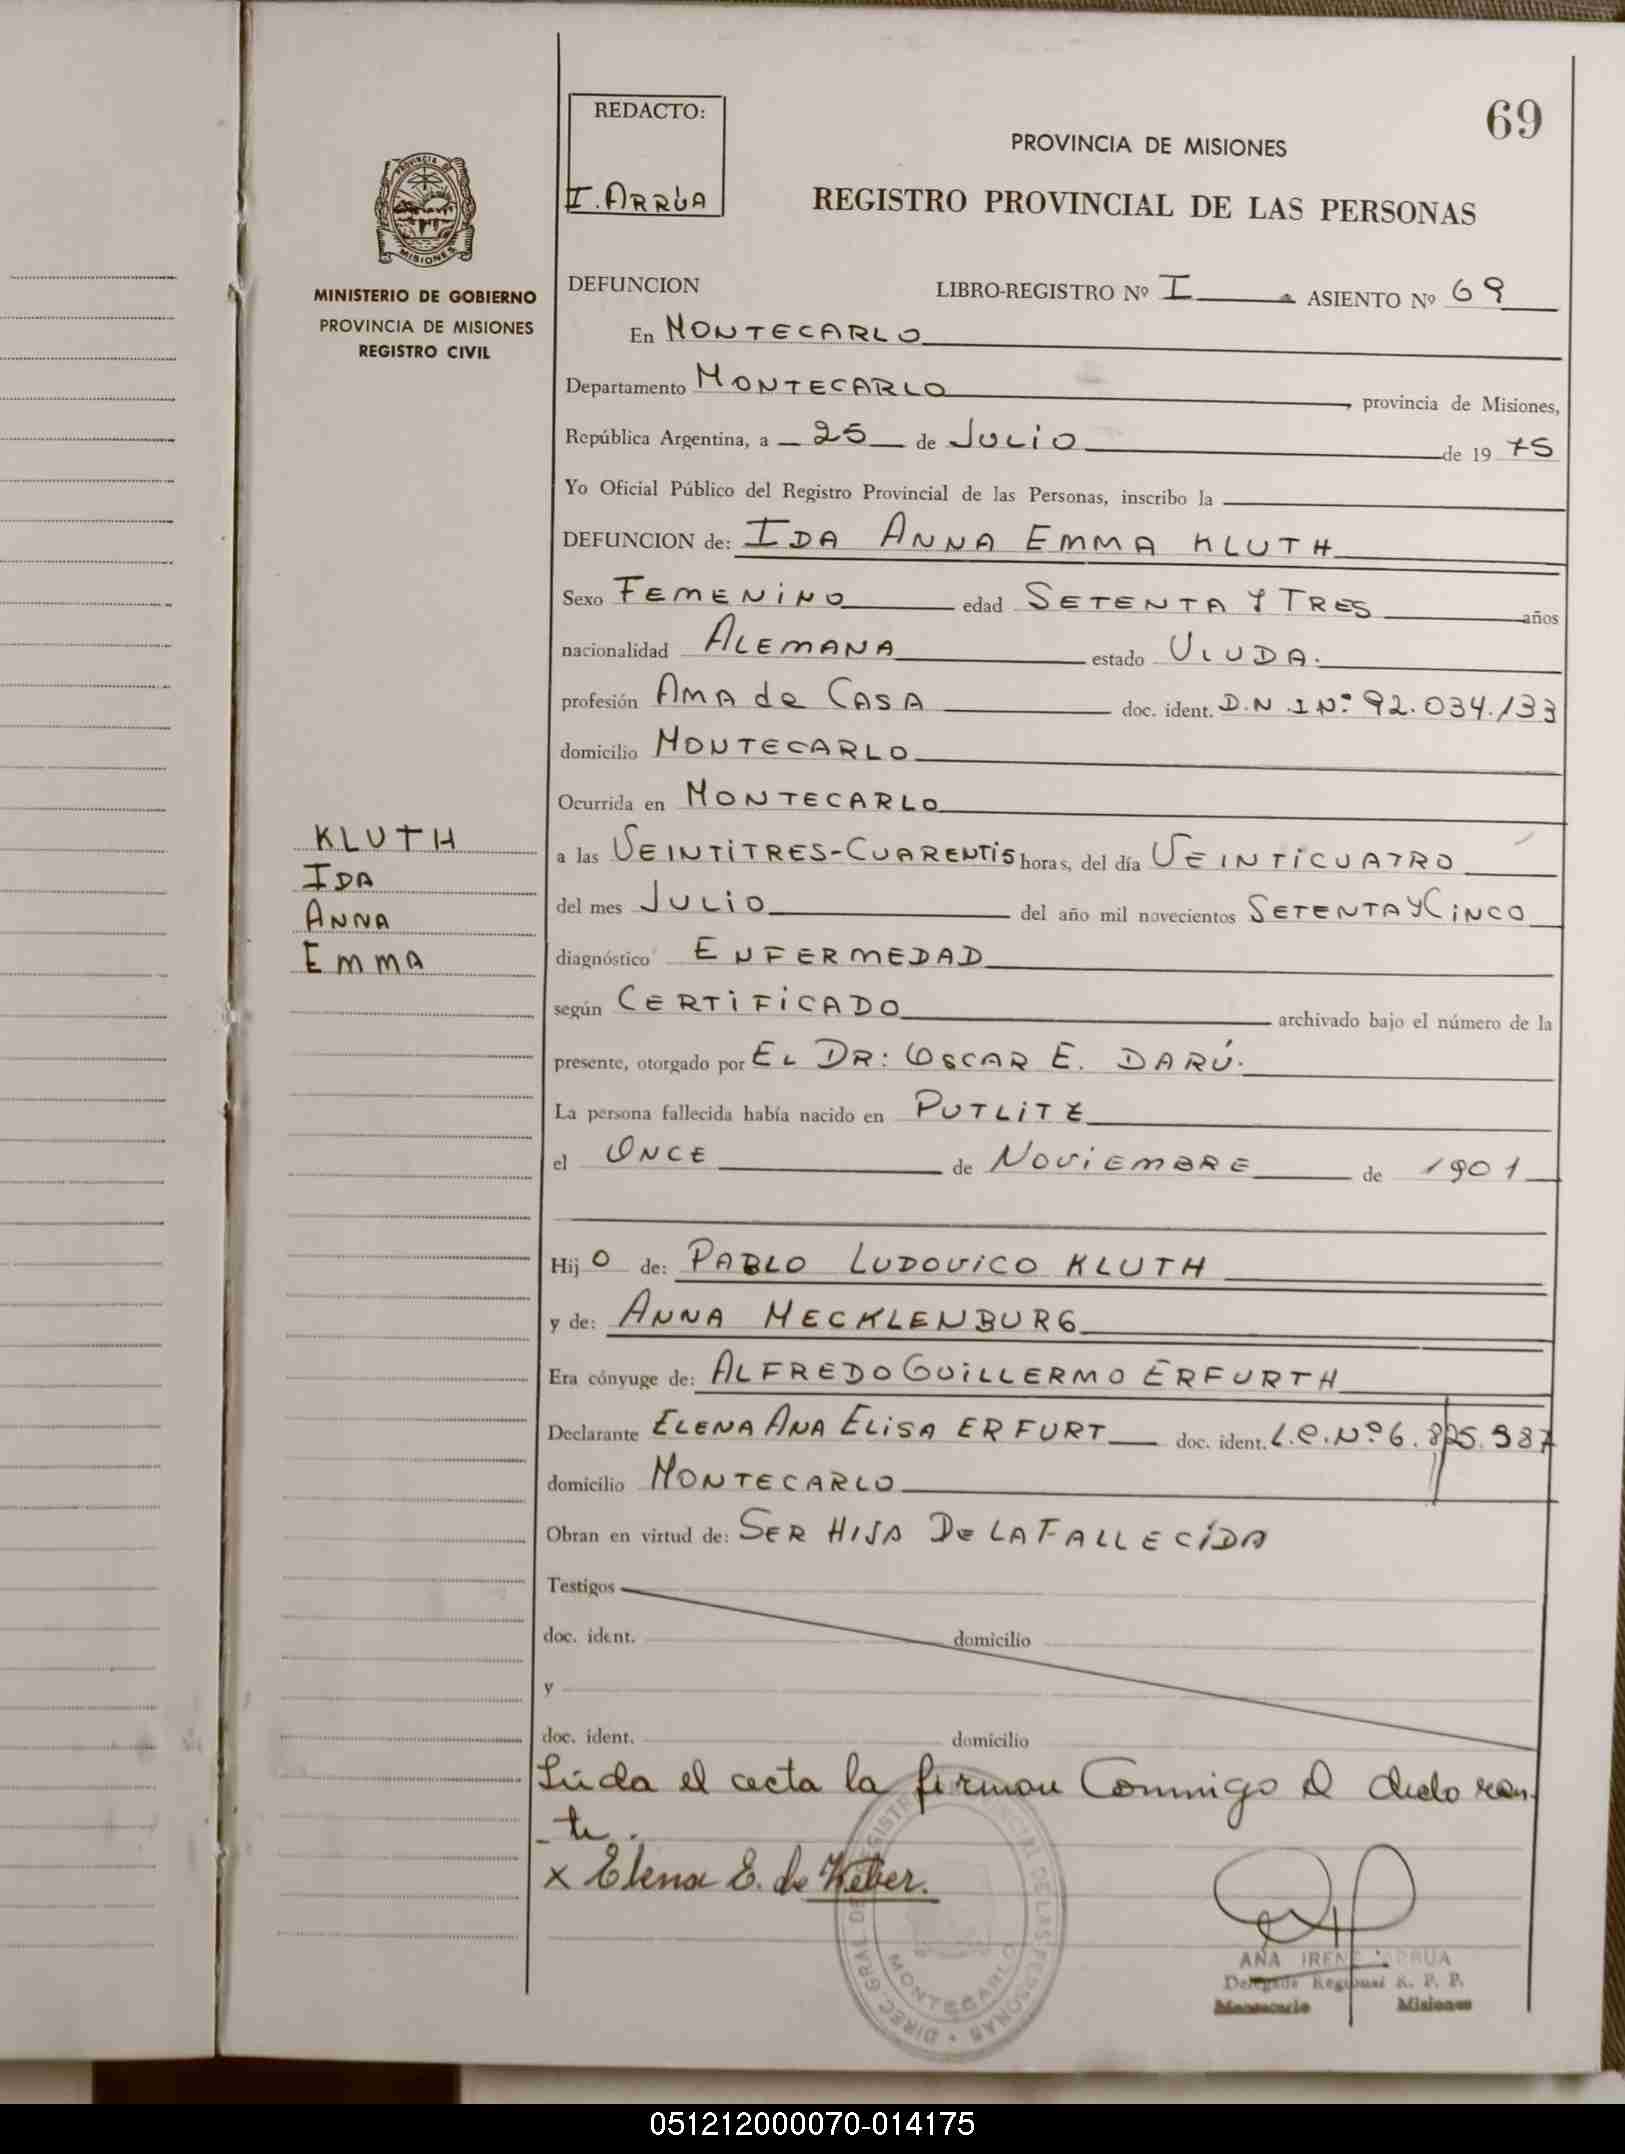 69
REDACTO:
I. ARRÚA
PROVINCIA DE MISIONES
REGISTRO PROVINCIAL DE LAS PERSONAS
PROVINCIA DE
MISIONES
MINISTERIO DE GOBIERNO
PROVINCIA DE MISIONES
REGISTRO CIVIL
DEFUNCION LIBRO-REGISTRO Nº I ASIENTO Nº 69
En MONTECARLO
Departamento MONTECARLO, provincia de Misiones,
República Argentina, a 25 de JULIO de 19 75
Yo Oficial Público del Registro Provincial de las Personas, inscribo la
DEFUNCION de: IDA ANNA EMMA KLUTH
Sexo FEMENINO edad SETENTA Y TRES años
nacionalidad ALEMANA estado VIUDA.
profesión AMA de CASA doc. ident. D.N.I Nº 92.034.133
domicilio MONTECARLO
Ocurrida en MONTECARLO
a las VEINTITRES-CUARENTIS horas, del día VEINTICUATRO
del mes JULIO del año mil novecientos SETENTA Y CINCO
diagnóstico ENFERMEDAD
según CERTIFICADO archivado bajo el número de la
presente, otorgado por EL DR: OSCAR E. DARÚ.
La persona fallecida había nacido en PUTLITZ
el ONCE de NOVIEMBRE de 1901
Hij O de: PABLO LUDOVICO KLUTH
y de: ANNA MECKLENBURG
Era cónyuge de: ALFREDO GUILLERMO ERFURTH
Declarante ELENA ANA ELISA ERFURT doc. ident. L.C. Nº 6.825.987
domicilio MONTECARLO
Obran en virtud de: SER HIJA DE LA FALLECIDA
Testigos
doc. ident. domicilio
y
doc. ident. domicilio
Leida el acta la firman Conmigo el declaran-
te.
x Elena E. de Weber.
KLUTH
IDA
ANNA
EMMA
DIREC. GRAL. DE REGISTRO PROVINCIAL DE LAS PERSONAS
MONTECARLO
ANA IRENE ARRUA
Delegada Regional R. P. P.
Montecarlo Misiones
051212000070-014175